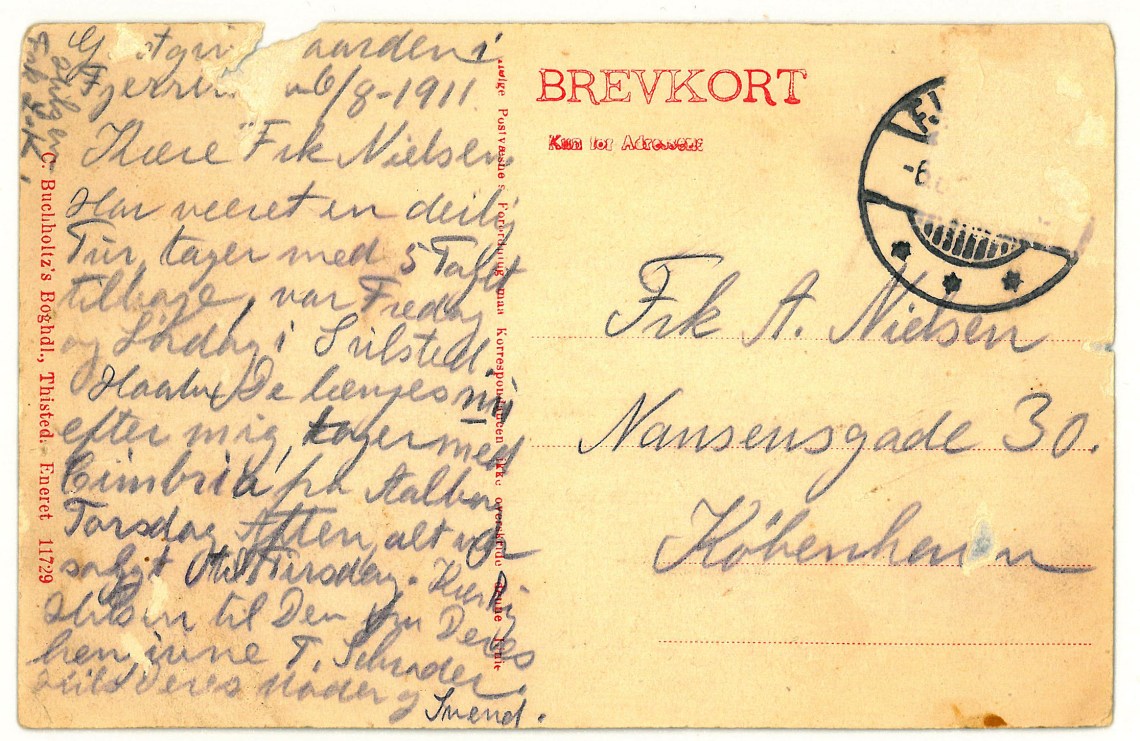 G tgiv aarden i
Fjerri d 6/8-1911.
Kære Frk Nielsen.
Har været en deilig
Tur, tager med 5 Toget
tilbage, var Fredag
og Lördag i Sulsted.
Haaber De længes
efter mig, tager med
Cimbria fra Aalborg
Torsdag Aften, alt var
solgt til Tirsdag. Kærlig
Hilsen til Dem fra Deres
hen T. Schrøder.
Hils Deres Moder og
Svend.
C. Buchholtz's Boghdl., Thisted. Eneret 11729
Ifølge Postvæsnets Forordning maa Korrespondancen ikke overskride denne Linie
BREVKORT
Kun for Adressen
-6.
Frk A. Nielsen
Nansensgade 30.
Köbenhavn